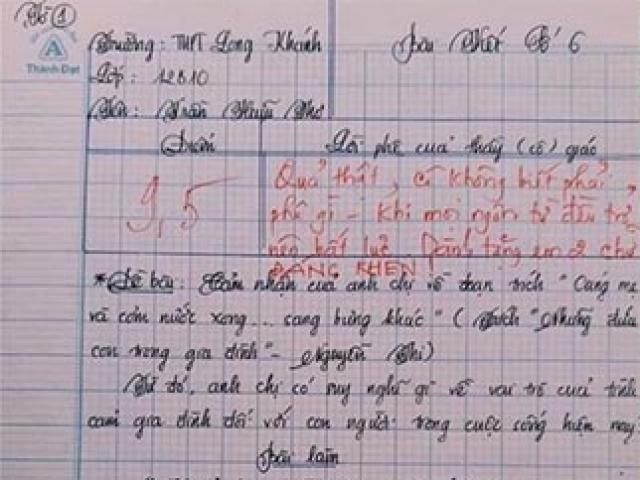 Đề 1
Thành Đạt
Trường: THPT Long Khánh
Bài Viết Số 6
Lớp: 12B10
Tên: Trần Huỳnh Như
Điểm
Lời phê của thầy (cô) giáo
9,5
Quả thật, cô không biết phải
phê gì - khi mọi ngôn từ đều trở
nên bất lực. Dành tặng em 2 chữ
ĐÁNG KHEN!
*Đề bài: Cảm nhận của anh chị về đoạn trích "Cúng mẹ
và cơm nước xong... sang hừng khác" (Trích "Những đứa
con trong gia đình" - Nguyễn Thi)
Từ đó, anh chị có suy nghĩ gì về vai trò của tình
cảm gia đình đối với con người trong cuộc sống hiện nay
Bài làm